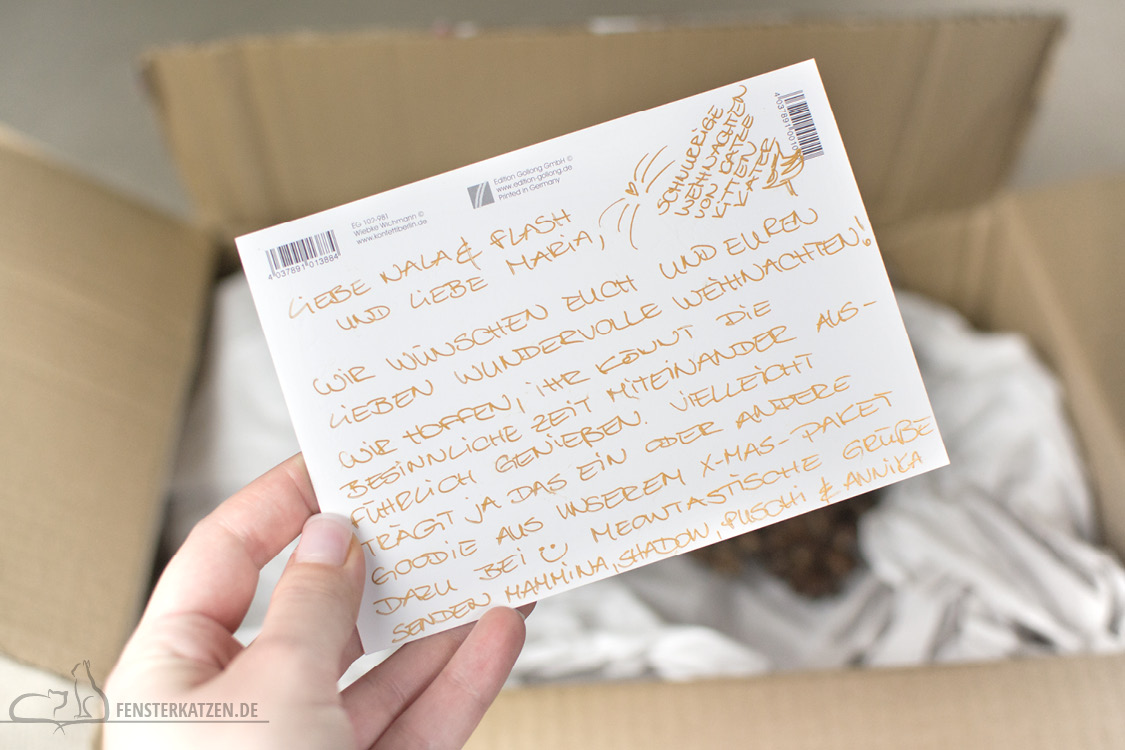 4 037891 013884
EG 102-981
Wiebke Wichmann ©
www.konfettiberlin.de
Edition Gollong GmbH ©
www.edition-gollong.de
Printed in Germany
SCHNURRIGE
WEIHNACHTEN
VON
KITTEN
KATER
4 037891 0010
LIEBE NALA & FLASH
UND LIEBE MARIA,
WIR WÜNSCHEN EUCH UND EUREN
LIEBEN WUNDERVOLLE WEIHNACHTEN!
WIR HOFFEN, IHR KÖNNT DIE
BESINNLICHE ZEIT MITEINANDER AUS-
FÜHRLICH GENIEßEN. VIELLEICHT
TRÄGT JA DAS EIN ODER ANDERE
GOODIE AUS UNSEREM X-MAS-PAKET
DAZU BEI MEOWTASTISCHE GRÜßE
SENDEN MAMMINA, SHADOW, PUSCHI & ANNIKA
FENSTERKATZEN.DE